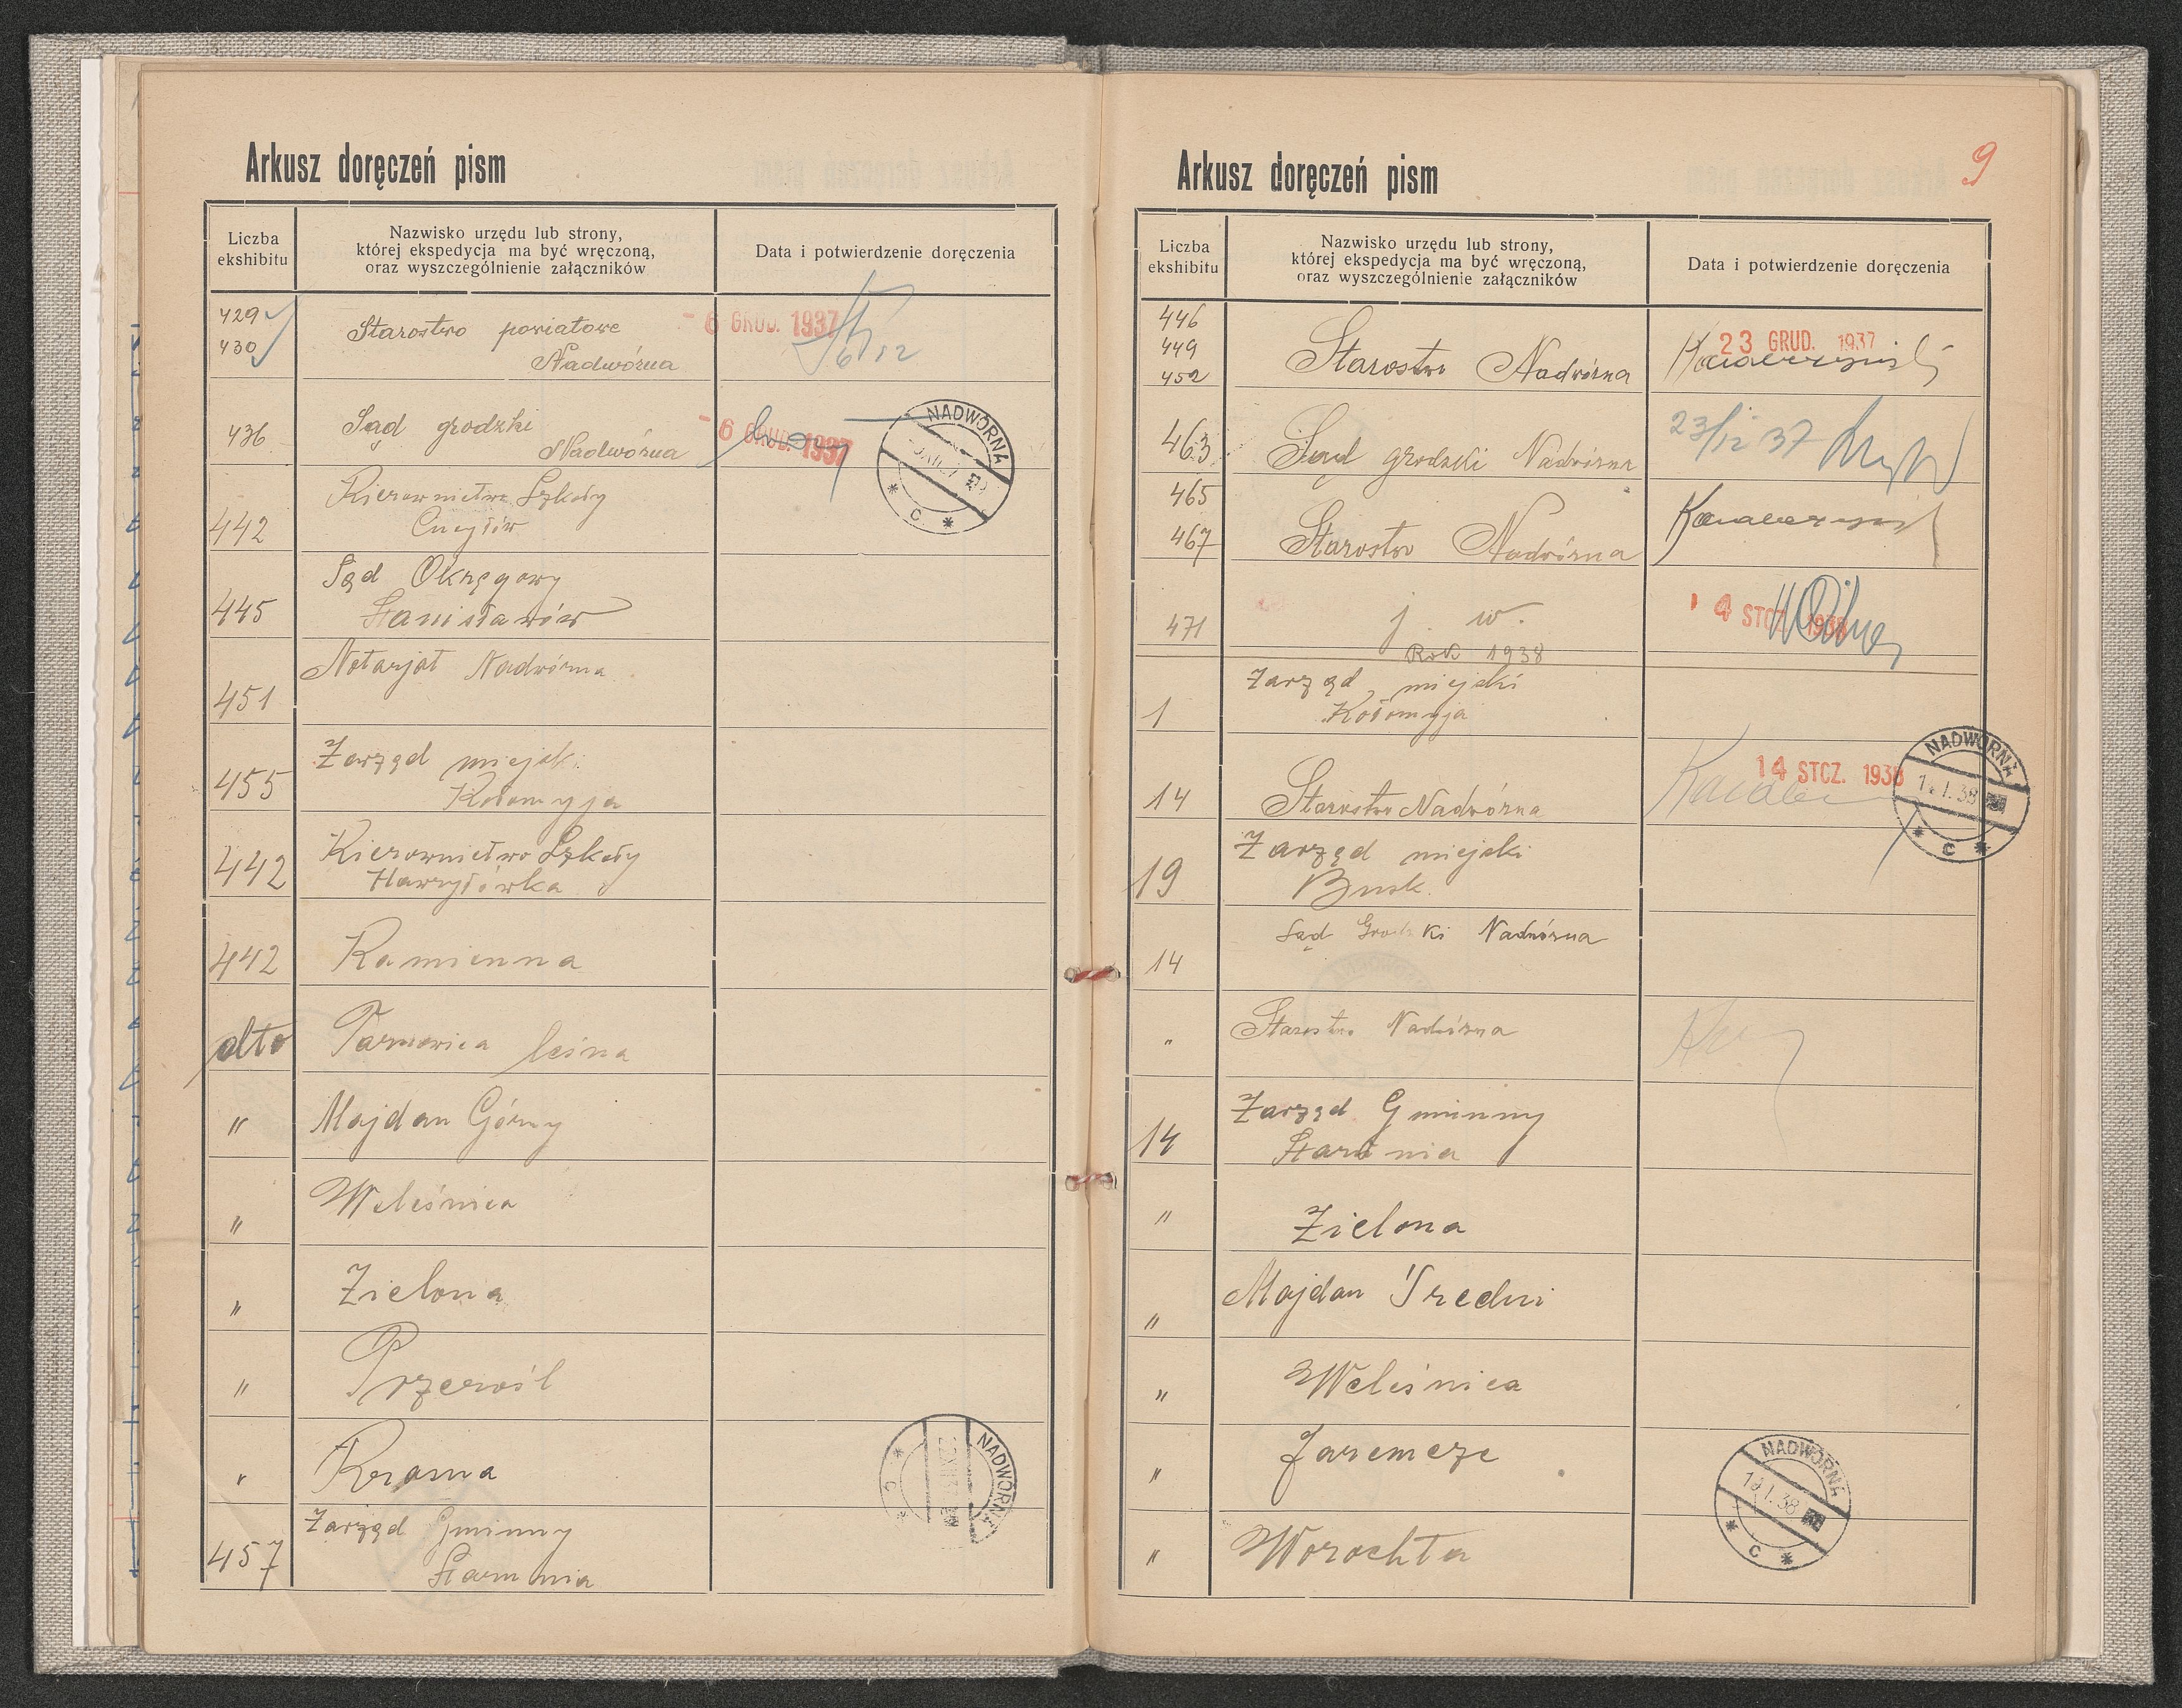 Arkusz doręczeń pism
Liczba
ekshibitu
Nazwisko urzędu lub strony,
której ekspedycja ma być wręczoną,
oraz wyszczególnienie załączników
Data i potwierdzenie doręczenia
429
430
Starostwo powiatowe
Nadwórna
- 6 GRUD. 1937
6/12
436
Sąd grodzki
Nadwórna
- 6 GRUD. 1937
NADWÓRNA
C
442
Kierownictwo Szkoły
Cucyłów
445
Sąd Okręgowy
Stanisławów
451
Notarjat Nadwórna
455
Zarząd miejski
Kołomyja
442
Kierownictwo Szkoły
Hawryłówka
442
Kamienna
dto
Tarnowica leśna
"
Majdan Górny
"
Weleśnica
"
Zielona
"
Przerośl
"
Krasna
NADWÓRNA
C
457
Zarząd Gminny
Starunia
9
Arkusz doręczeń pism
Liczba
ekshibitu
Nazwisko urzędu lub strony,
której ekspedycja ma być wręczoną,
oraz wyszczególnienie załączników
Data i potwierdzenie doręczenia
446
449
452
Starostwo Nadwórna
23 GRUD. 1937
463
Sąd grodzki Nadwórna
23/12 37
465
467
Starostwo Nadwórna
471
j. w.
4 STCZ. 1938
Rok 1938
1
Zarząd miejski
Kołomyja
14
Starostwo Nadwórna
14 STCZ. 1938
NADWÓRNA
I.38
C
19
Zarząd miejski
Busk.
14
Sąd Grodzki Nadwórna
"
Starostwo Nadwórna
14
Zarząd Gminny
Starunia
"
Zielona
"
Majdan Średni
"
Weleśnica
"
Jaremcze
NADWÓRNA
I.38
C
"
Worochta